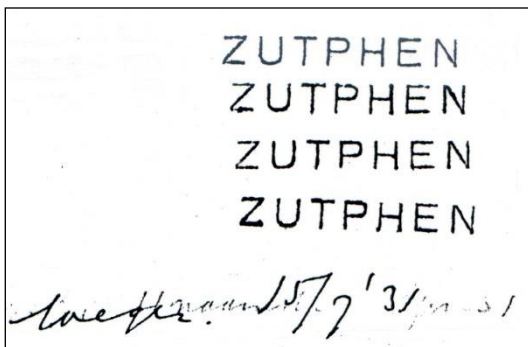 ZUTPHEN
ZUTPHEN
ZUTPHEN
ZUTPHEN
15/7 '31